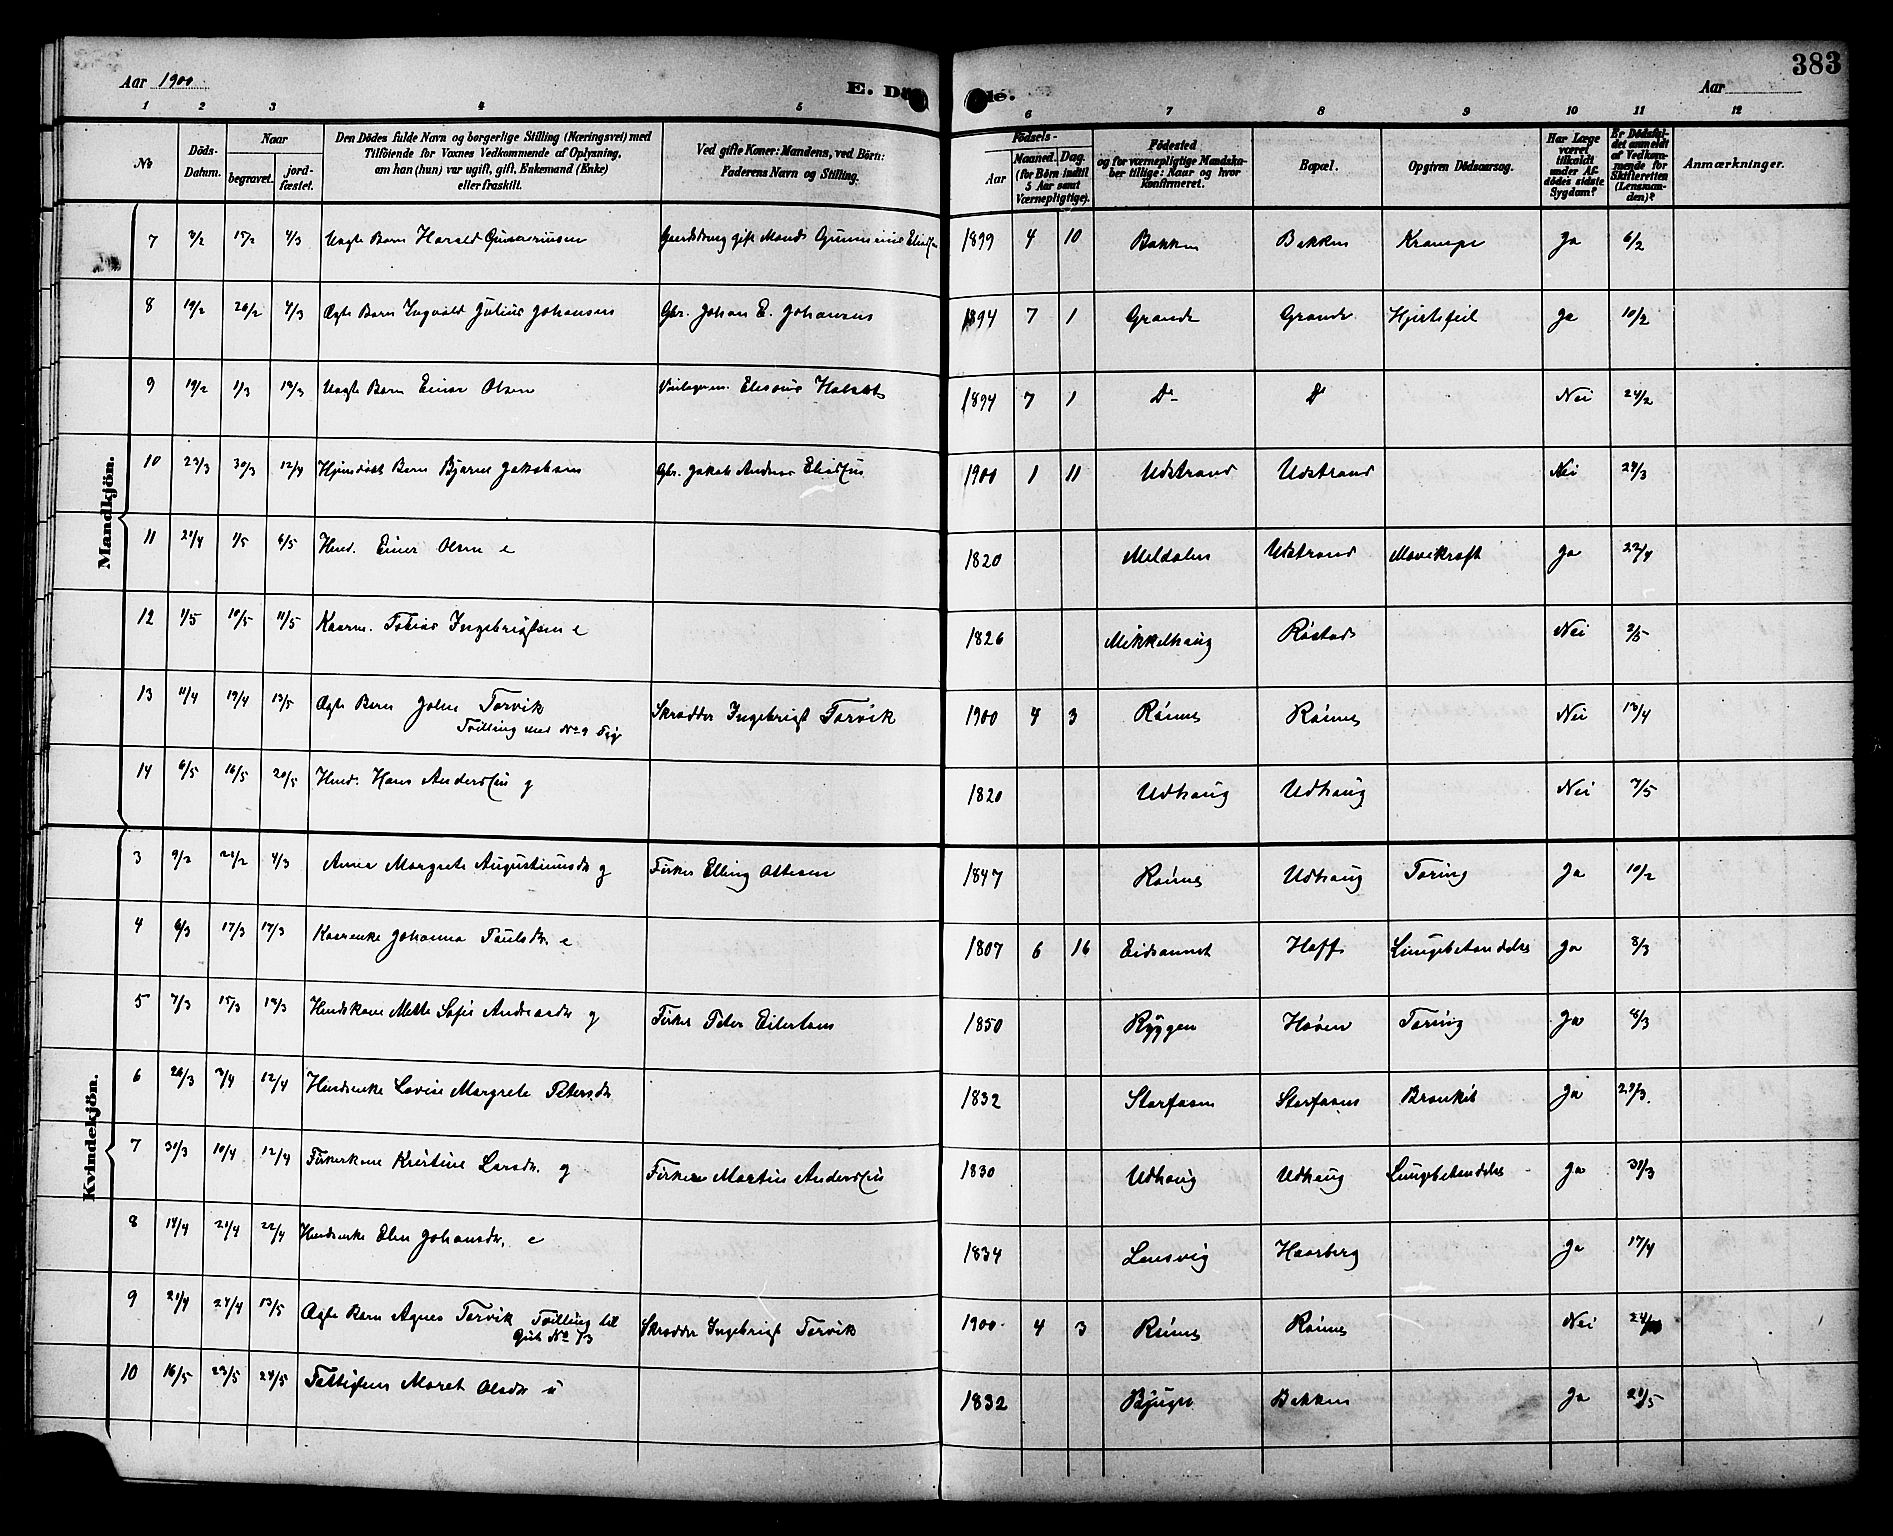 383
Aar 1900
E. Dø de.
Aar
1 2 3 4 5 6 7 8 9 10 11 12
No
Døds-Datum.
Naar
begravet.
jord-fæstet.
Den Dødes fulde Navn og borgerlige Stilling (Næringsvei) med
Tilføiende for Voxnes Vedkommende af Oplysning,
om han (hun) var ugift, gift, Enkemand (Enke)
eller fraskilt.
Ved gifte Koner: Mandens, ved Børn:
Faderens Navn og Stilling.
Fødsels-
Aar
Maaned. Dag.
(for Børn indtil
5 Aar samt
Værnepligtige).
Fødested
og for værnepligtige Mandska-
ber tillige: Naar og hvor
konfirmeret.
Bopæl.
Opgiven Dødsaarsag.
Har Læge
været
tilkaldt
under Af-
dødes sidste
Sygdom?
Er Dødsfal-
det anmeldt
af Vedkom-
mende for
Skifteretten
(Lensman-
den)?
Anmærkninger.
Mandkjøn.
7 15/2 4/3 Uægte Barn Harald 1899 4 10 Bakken Bakken Krampe Ja 6/2
8 19/2 26/2 4/3 Ægte Barn Ingvald Julius Johansen Gbr. Johan E. Johansen 1894 7 1 Grande Grande Ja 10/2
9 19/2 1/3 19/3 Uægte Barn Einar Olsen 1894 7 1 Do Do Nei 24/2
10 23/3 30/3 12/4 Hjemdøbt Barn Bjarne Jakobsen Gbr. Jakob Andreas Eliassen 1900 1 11 Udstrand Udstrand Nei 24/3
11 21/4 1/5 6/5 Husmd. Einer Olsen e 1820 Meldalen Udstrand Mavekræft Ja 22/4
12 1/5 10/5 11/5 Kaarm. Tobias Ingebrigtsen e 1826 Mikkelhaug Røstad Nei 2/5
13 11/4 19/4 13/5 Ægte Barn Johan Torvik
Tvilling med No 9 Pige
Skrædder Ingebrigt Torvik 1900 4 3 Rønnes Rønnes Nei 13/4
14 6/5 16/5 20/5 Husmd. Hans Anderssen g 1820 Udhaug Udhaug Nei 7/5
Kvindekjøn.
3 9/2 21/2 4/3 Anna Margrete Augustinusdtr g Fisker Elling Ottesen 1847 Rønnes Udhaug Tæring Ja 10/2
4 6/3 17/3 17/3 Kaarenke Johanna Paulsdtr. e 1807 6 16 Eidsannet Hoff Lungebetændelse Ja 8/3
5 7/3 15/3 19/3 Husmdskone Mette Sofie Andreasdtr g Fisker Peter Eilertsen 1850 Ryggen Hoven Tæring Ja 8/3
6 26/3 3/4 12/4 Husmdsenke Lovise Margrete Petersdtr 1832 Storfosen Storfosen Bronkit Ja 29/3.
7 31/3 10/4 12/4 Fiskerkone Kristine Larsdtr. g Fisker Martin Anderssen 1830 Udhaug Udhaug Lungebetændelse Ja 31/3
8 14/4 21/4 22/4 Husmdsenke Elen Johansdtr. e 1834 Lensvig Haarberg Ja 17/4
9 21/4 24/4 13/5 Ægte Barn Agnes Torvik Tvilling til
Gut No 13
Skrædder Ingebrigt Torvik 1900 4 3 Rønnes Rønnes Nei
10 16/5 23/5 24/5 Fattiglem Maret Olsdtr u 1832 Bjugn Bakken Ja 21/5